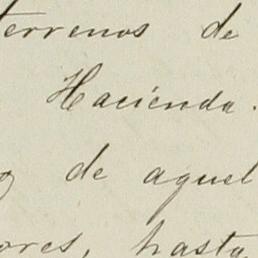 terrenos de
Hacienda.
de aquel
ores, hasta